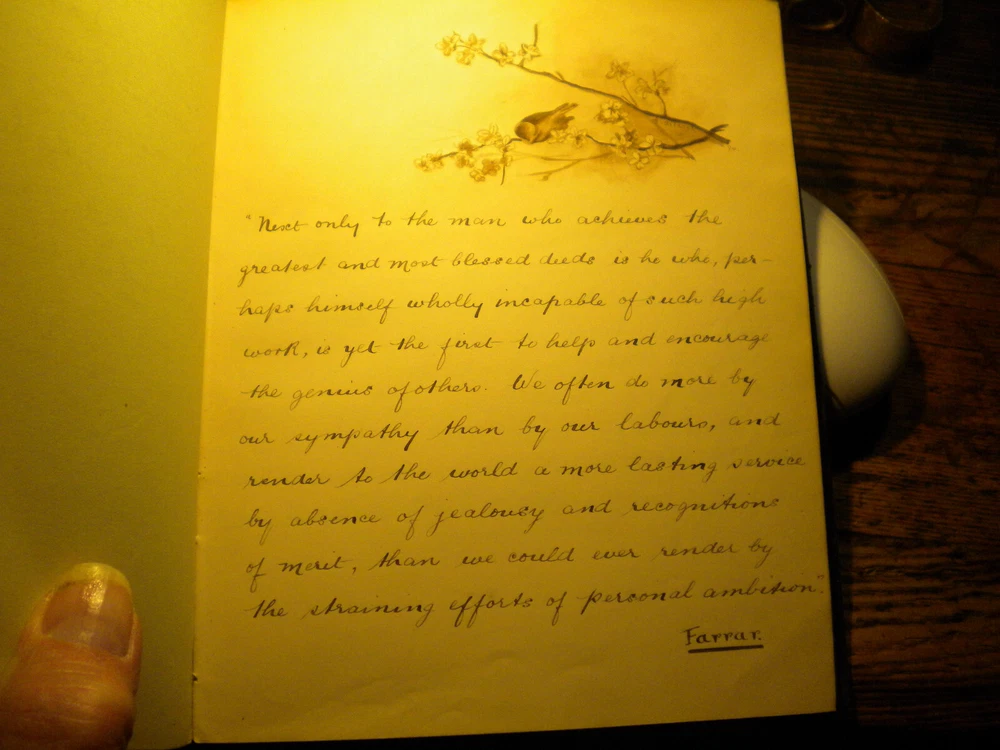 "Next only to the man who achieves the
greatest and most blessed deeds is he who, per-
haps himself wholly incapable of such high
work, is yet the first to help and encourage
the genius of others. We often do more by
our sympathy than by our labours, and
render to the world a more lasting service
by absence of jealousy and recognitions
of merit, than we could ever render by
the straining efforts of personal ambition".
Farrar.